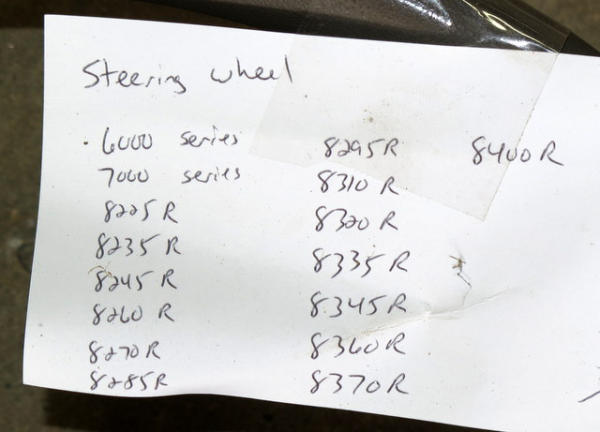 Steering wheel
6000 series
7000 series
8225 R
8235 R
8245 R
8260 R
8270 R
8285R
8295R
8310 R
8320 R
8335 R
8345R
8360R
8370R
8400R